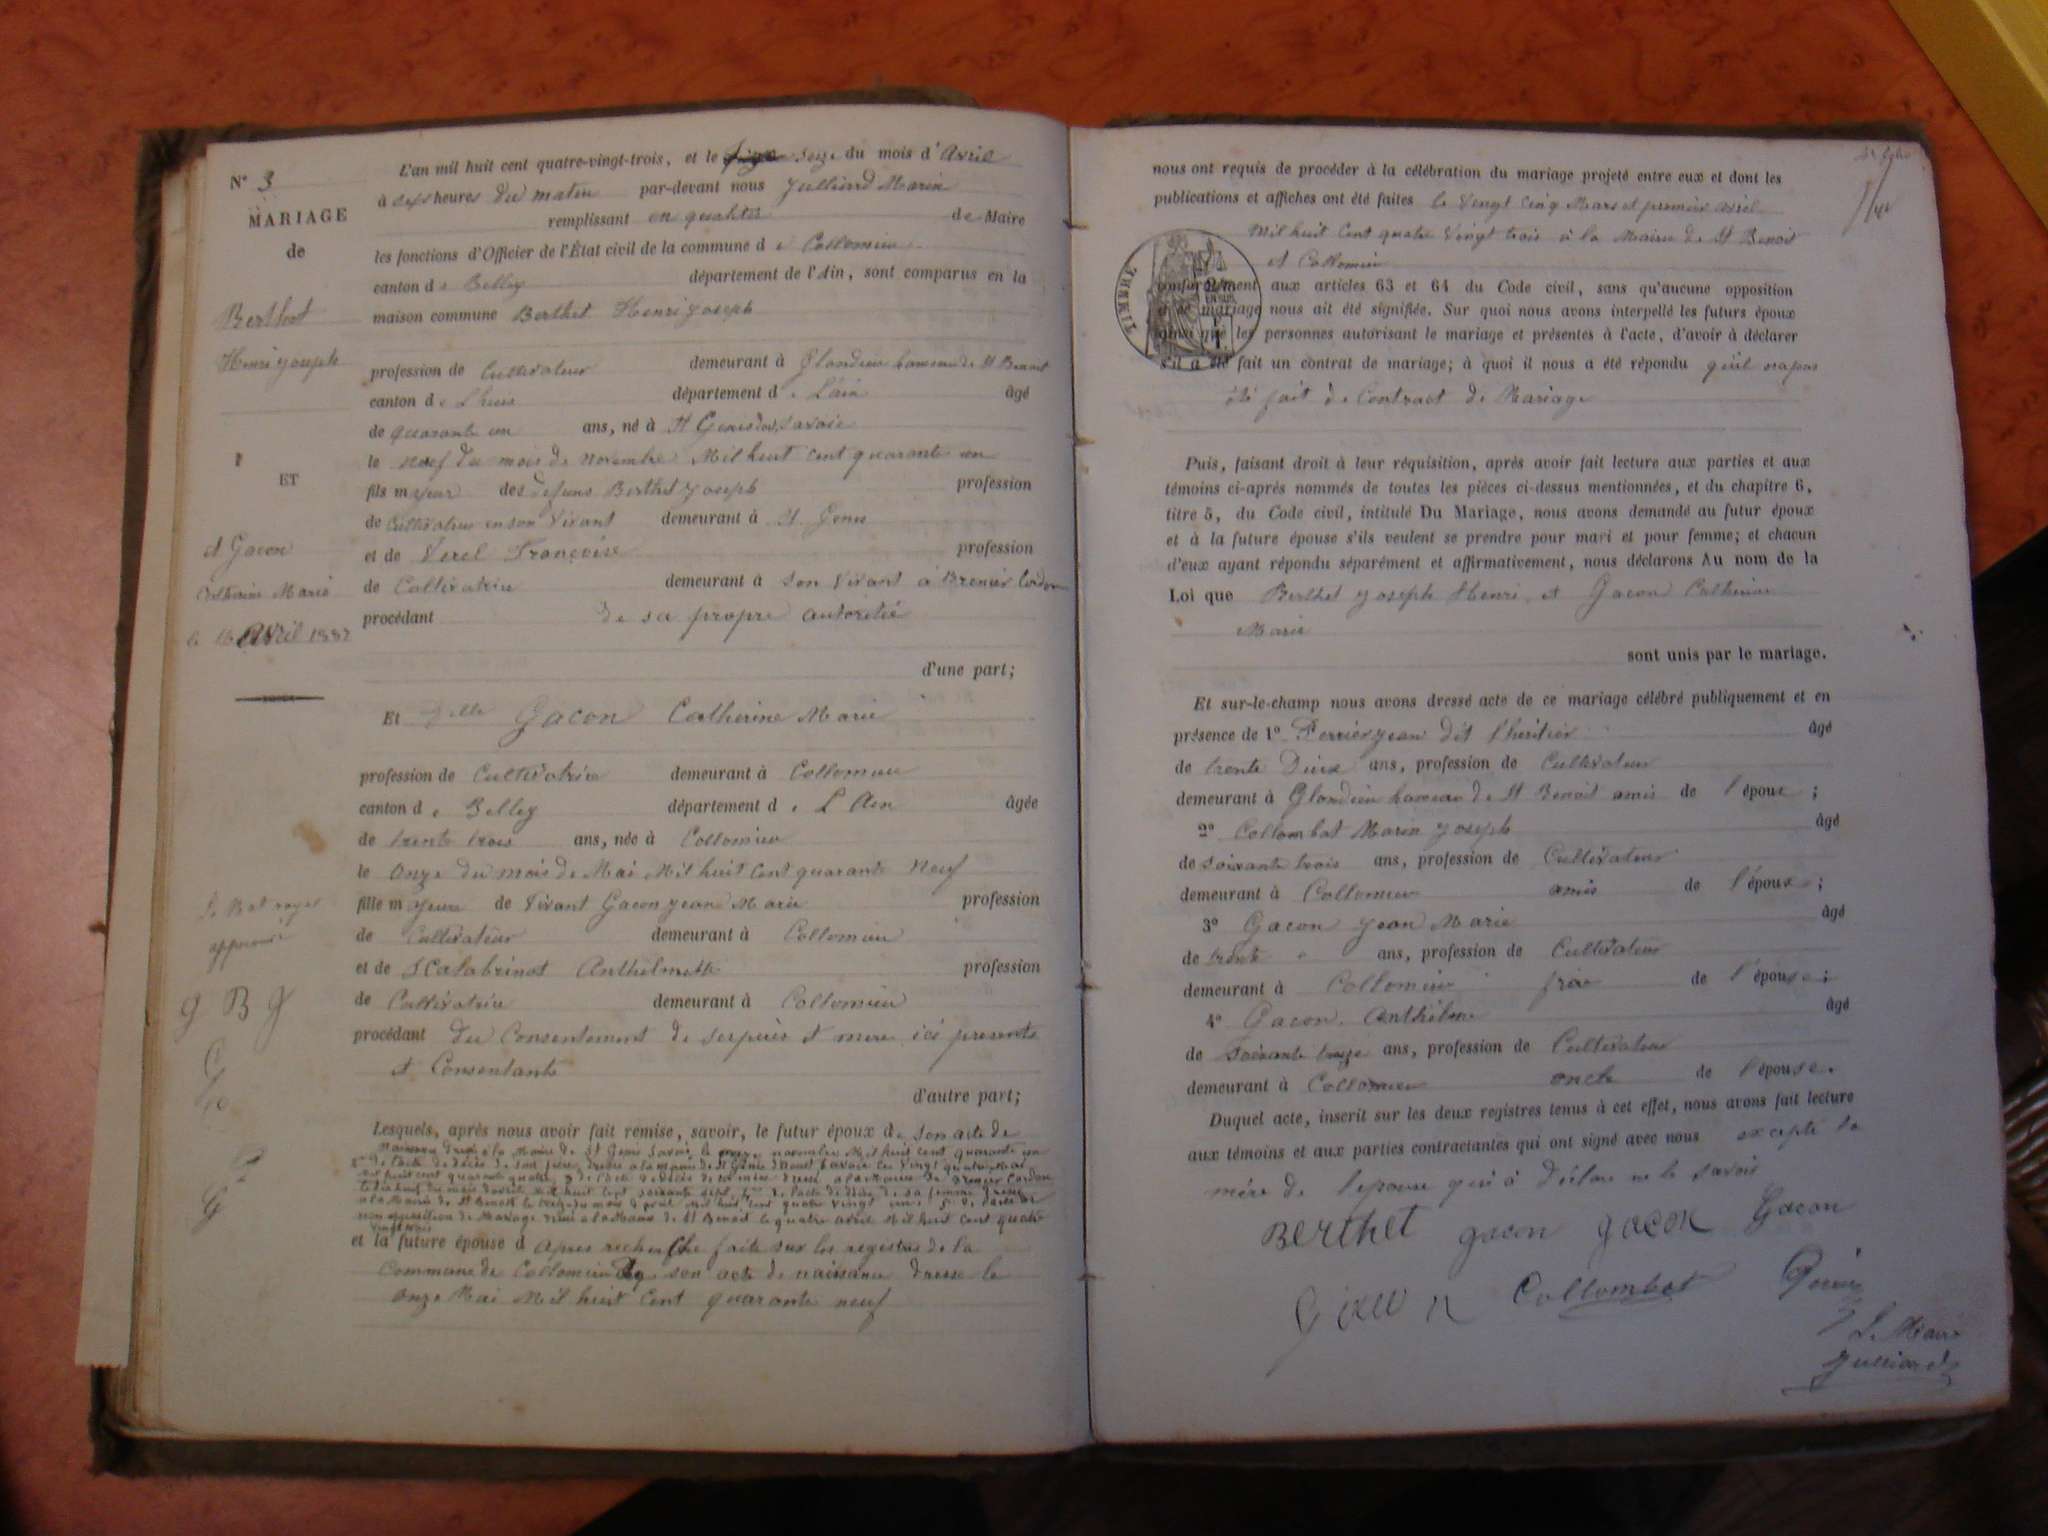 N° 3
MARIAGE
de
Berthet
Henri joseph
ET
et Gacon
Catherine Marie
le 16 Avril 1883
approuvé
G B J
L'an mil huit cent quatre-vingt-trois, et le seize du mois d'Avril
à six heures du matin par-devant nous Julliard Marin
remplissant en qualité de Maire
les fonctions d'Officier de l'État civil de la commune de Collomieu
canton de Belley département de l'Ain, sont comparus en la
maison commune Berthet Henri joseph
profession de Cultivateur demeurant à Glandieu hameau de St Benoit
canton de Lhuis département de L'ain âgé
de quarante un ans, né à St Genis Savoie
le neuf du mois de novembre Mil huit cent quarante un
fils majeur des defuns Berthet Joseph profession
de Cultivateur en son vivant demeurant à St Genis
et de Verel Françoise profession
de Cultivatrice demeurant à son vivant à Brenier Cordon
procédant de sa propre autoritié
d'une part;
Et Delle Gacon Catherine Marie
profession de Cultivatrice demeurant à Collomieu
canton de Belley département de L'Ain âgée
de trente trois ans, née à Collomieu
le onze du mois de Mai Mil huit Cent quarante neuf
fille majeure de vivant Gacon jean Marie profession
de Cultivateur demeurant à Collomieu
et de Scalabrinot Anthelmette profession
de Cultivatrice demeurant à Collomieu
procédant du Consentement de ses père et mere ici presents
et Consentants
d'autre part;
Lesquels, après nous avoir fait remise, savoir, le futur époux de son acte de
Naissance dressé a la Mairie de St Genis Savoie le novembre Mil huit cent quarante un
2° de l'acte de décès de son père dressé a la mairie de St Genis Savoie le vingt quatre Mai
Mil huit cent quarante quatre, 3° de l'acte de décès de sa mère dressé a la Mairie de Brenier Cordon
Mil huit cent soixante sept, 4° de l'acte de décès de sa femme dressé
a la Mairie de St Benoit le du mois d' avril Mil huit cent quatre vingt un 5° de l'acte de
non opposition de Mariage dressé a la Mairie de St Benoit le quatre avril Mil huit cent quatre
vingt trois
et la future épouse d après recherche faite sur les registres de la
Commune de Collomieu de son acte de naissance dressé le
onze Mai Mil huit Cent quarante neuf
nous ont requis de procéder à la célébration du mariage projeté entre eux et dont les
publications et affiches ont été faites le vingt cinq Mars et premier avril
Mil huit Cent quatre vingt trois à la Mairie de St Benoit
et Collomieu
TIMBRE
conformément aux articles 63 et 64 du Code civil, sans qu'aucune opposition
à ce mariage nous ait été signifiée. Sur quoi nous avons interpellé les futurs époux
ainsi que les personnes autorisant le mariage et présentes à l'acte, d'avoir à déclarer
s'il a été fait un contrat de mariage; à quoi il nous a été répondu qu'il n'a pas
été fait de Contract de Mariage
Puis, faisant droit à leur réquisition, après avoir fait lecture aux parties et aux
témoins ci-après nommés de toutes les pièces ci-dessus mentionnées, et du chapitre 6,
titre 5, du Code civil, intitulé Du Mariage, nous avons demandé au futur époux
et à la future épouse s'ils veulent se prendre pour mari et pour femme; et chacun
d'eux ayant répondu séparément et affirmativement, nous déclarons Au nom de la
Loi que Berthet Joseph Henri et Gacon Catherine
Marie
sont unis par le mariage.
Et sur-le-champ nous avons dressé acte de ce mariage célébré publiquement et en
présence de 1° Perrier jean dit l'heritier âgé
de trente Deux ans, profession de Cultivateur
demeurant à Glandieu hameau de St Benoit amis de l'époux;
2° Collombat Marin Joseph âgé
de soixante trois ans, profession de Cultivateur
demeurant à Collomieu amis de l'époux;
3° Gacon Jean Marie âgé
de trente ans, profession de Cultivateur
demeurant à Collomieu frère de l'épouse;
4° Gacon Anthelme âgé
de Soixante treize ans, profession de Cultivateur
demeurant à Collomieu oncle de l'épouse.
Duquel acte, inscrit sur les deux registres tenus à cet effet, nous avons fait lecture
aux témoins et aux parties contractantes qui ont signé avec nous excepté la
mère de l'epouse qui à déclaré ne le savoir
Berthet gacon gacon Gacon
Collombat
Le Maire
Julliard